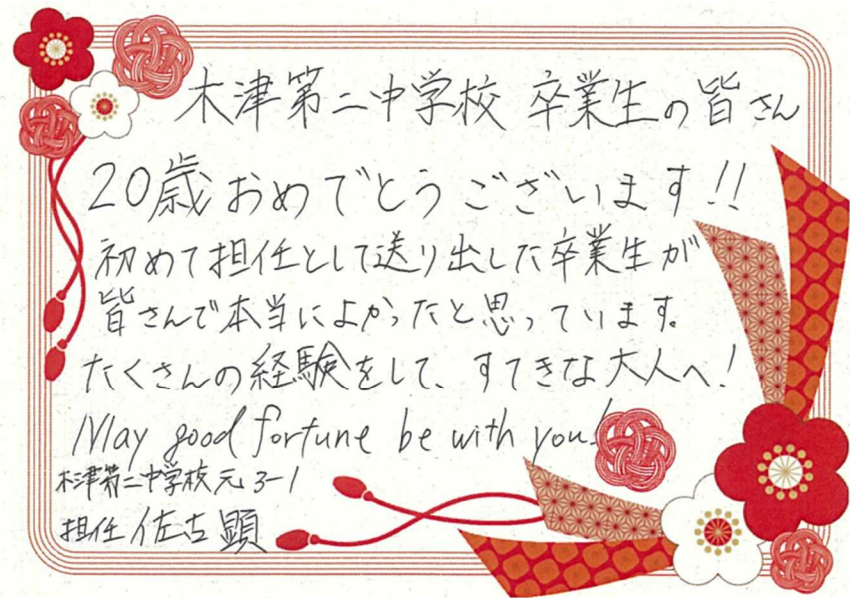 木津第二中学校 卒業生の皆さん
20歳おめでとうございます!!
初めて担任として送り出した卒業生が
皆さんで本当によかったと思っています。
たくさんの経験をして、すてきな大人へ!
May good fortune be with you!
木津第二中学校元3-1
担任 佐古 顕